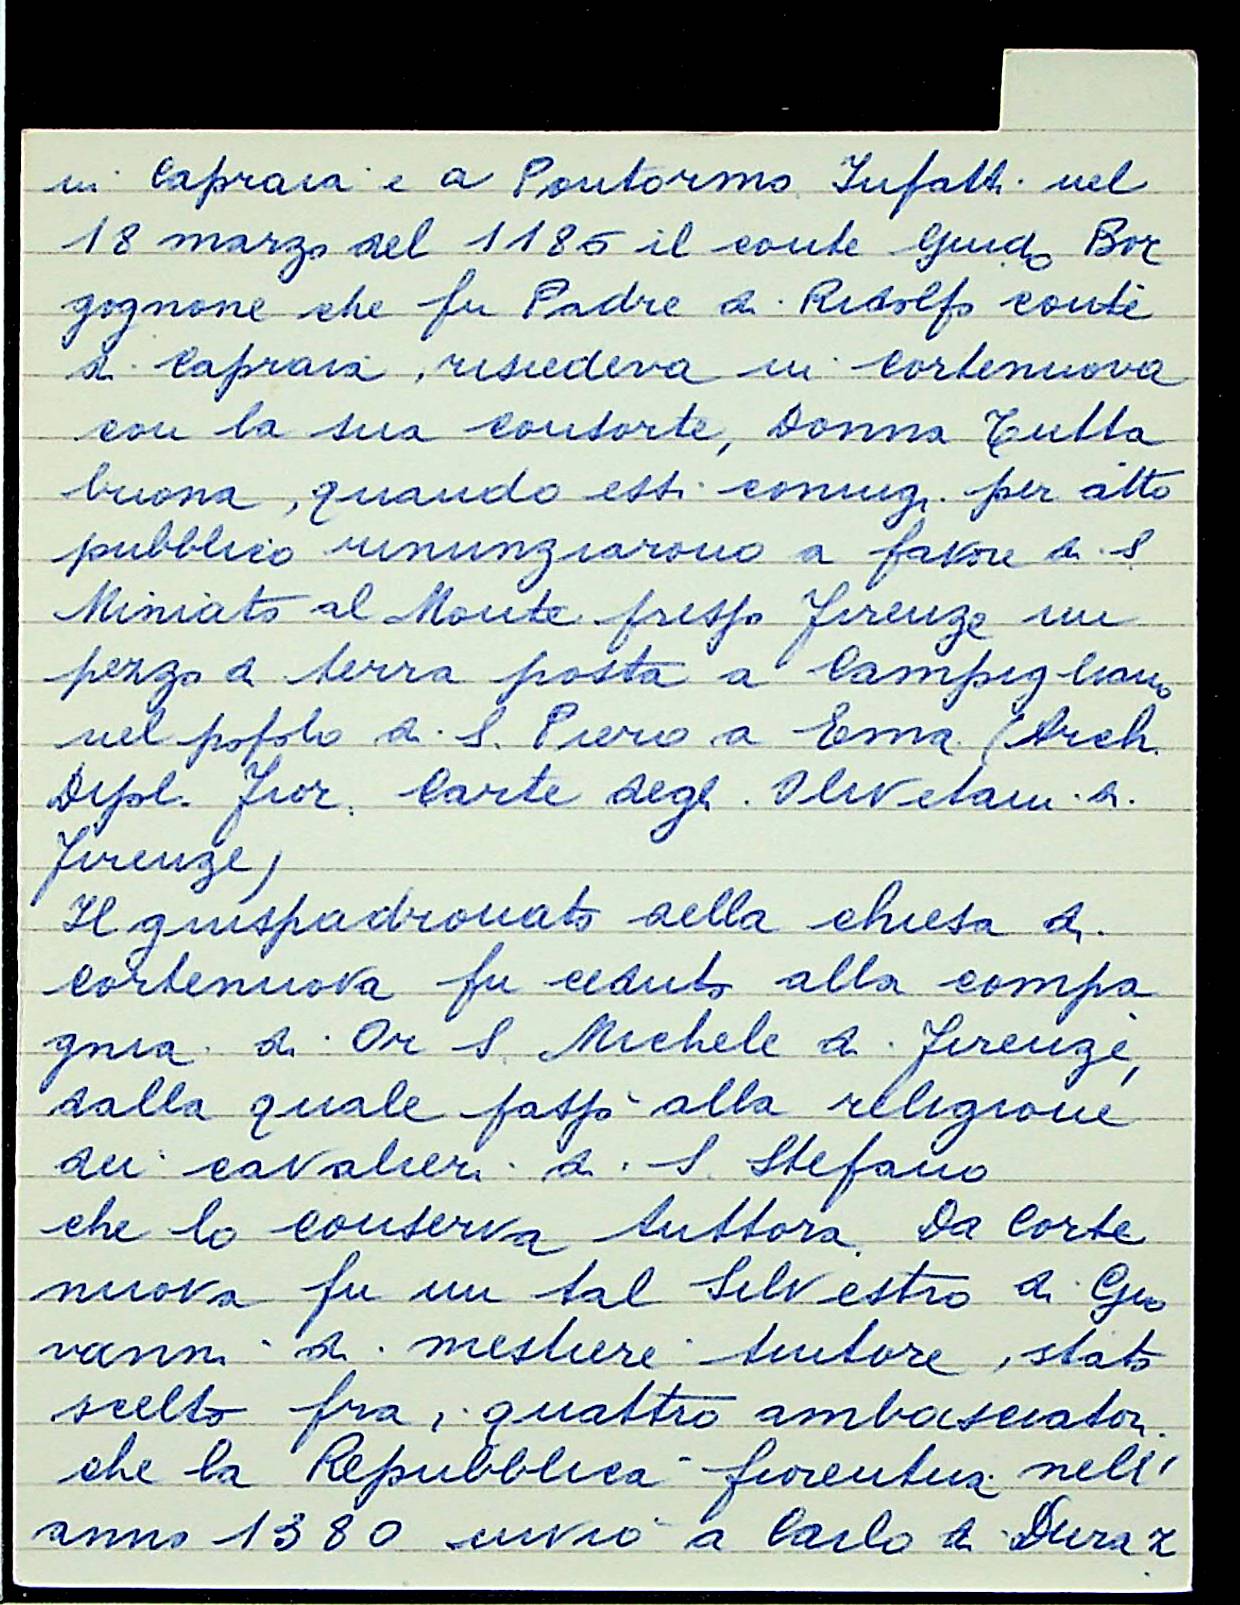 in Capraia e a Pontormo. Infatti nel
18 marzo del 1185 il conte Guido Bor
gognone che fu Padre di Ridolfo conte
di Capraia, risiedeva in Cortenuova
con la sua consorte, Donna Tutta
buona, quando essi coniugi per atto
pubblico rinunziarono a favore di S.
Miniato al Monte presso Firenze un
pezzo di terra posta a Campigliano
nel popolo di S. Piero a Ema. (Arch.
Dipl. Fior. Carte degli Olivetani di
Firenze)
Il giuspadronato della chiesa di
Cortenuova fu ceduto alla compa
gnia di Or S. Michele di Firenze,
dalla quale passò alla religione
dei cavalieri di S. Stefano
che lo conserva tuttora. Da Corte
nuova fu un tal Silvestro di Gio
vanni di mestiere tintore, stato
scelto fra i quattro ambasciatori
che la Repubblica fiorentina nell'
anno 1380 inviò a Carlo di Duraz